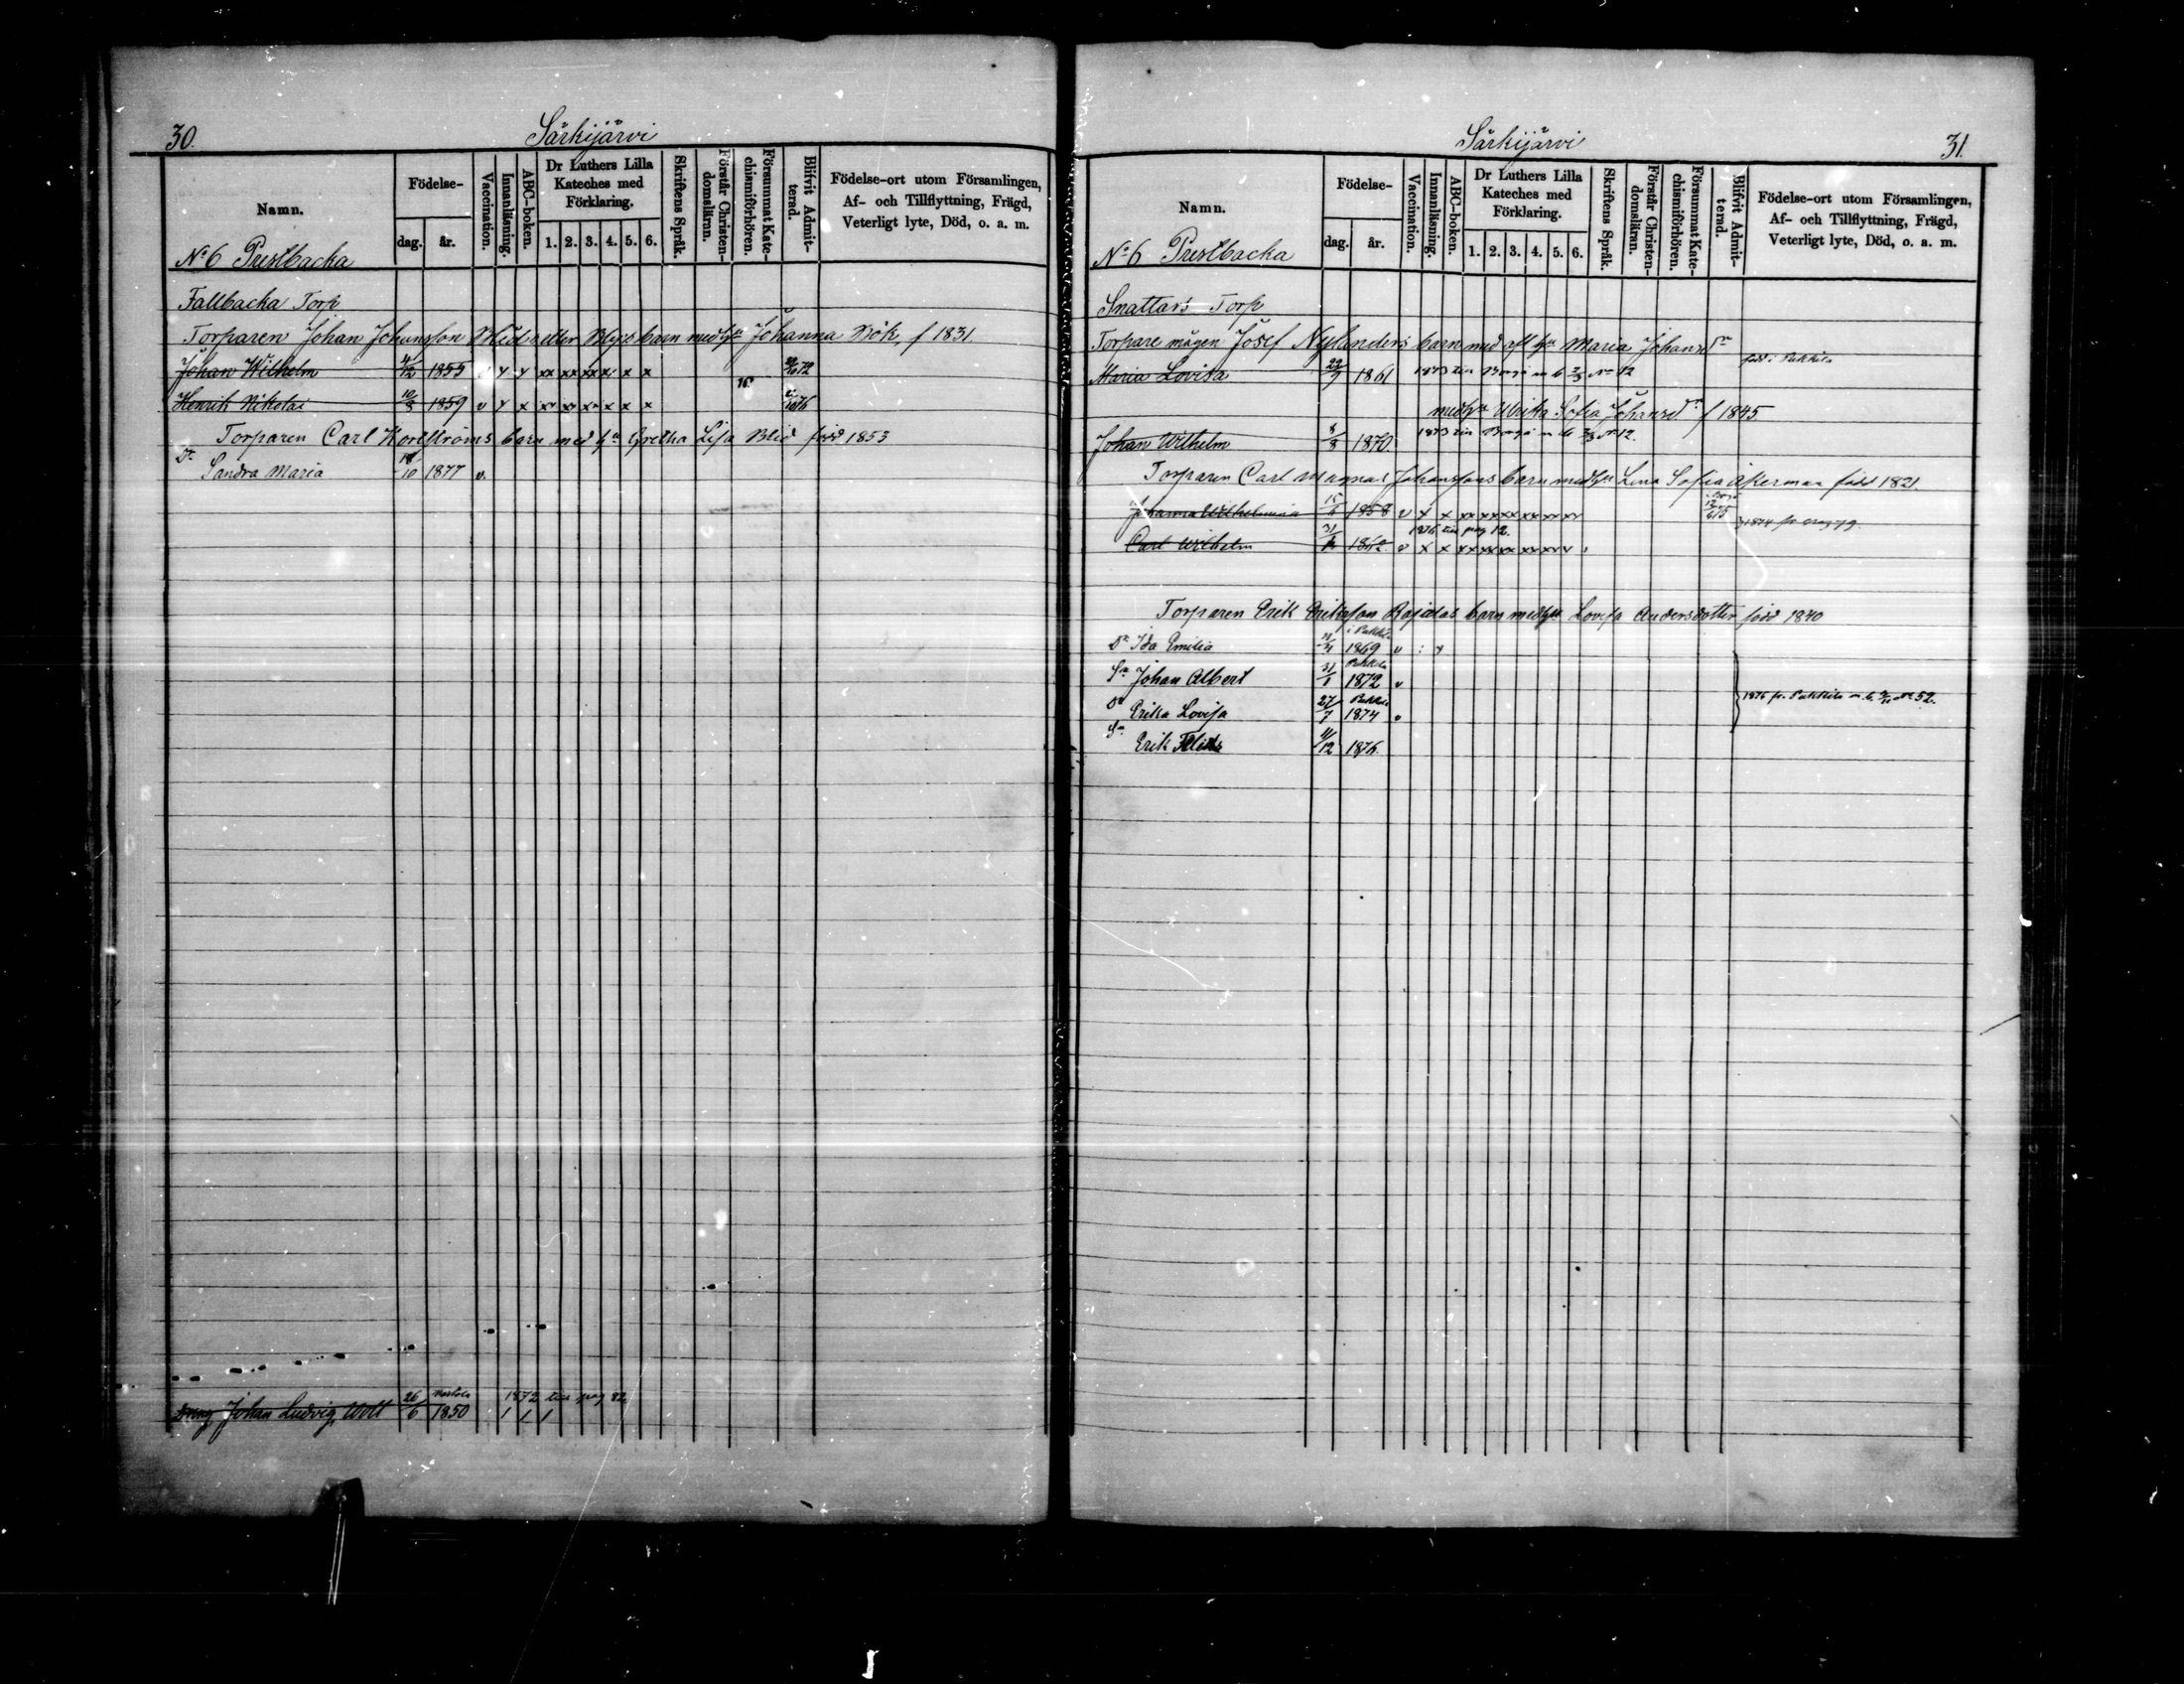 30.
Särkijärvi
Namn.
Födelse-
dag.
år.
Vaccination.
Innanläsning.
ABC-boken.
Dr Luthers Lilla
Kateches med
Förklaring.
1. 2. 3. 4. 5. 6.
Skriftens Språk.
Förstår Christen-
domsläran.
Försummat Kate-
chismiförhören.
Blifvit Admit-
terad.
Födelse-ort utom Församlingen,
Af- och Tillflyttning, Frägd,
Veterligt lyte, Död, o. a. m.
No 6 Prestbacka
Fallbacka Torp
Torparen Johan Johansson Blid eller barn med hu Johanna Bök, f 1831
Johan Wilhelm 1855 x x xx xx xx x x x 72
Henrik Nikolai 10/8 1859 v x x x x x 76
Torparen Carl Kortströms barn med hu Gretha Lisa Blid född 1853
Dr Sandra Maria 10 1877 v.
1872 till pag 82
Johan Ludvig 26/6 1850 1 1 1
31.
Särkijärvi
Namn.
Födelse-
dag.
år.
Vaccination.
Innanläsning.
ABC-boken.
Dr Luthers Lilla
Kateches med
Förklaring.
1. 2. 3. 4. 5. 6.
Skriftens Språk.
Förstår Christen-
domsläran.
Försummat Kate-
chismiförhören.
Blifvit Admit-
terad.
Födelse-ort utom Församlingen,
Af- och Tillflyttning, Frägd,
Veterligt lyte, Död, o. a. m.
No 6 Prestbacka
Snattars Torp
Torpare mågen Josef Nylanders barn med afl hu Maria Johansdr
Maria Lovisa 22/7 1861 1873 till Borgå m b No 12 född i Pukkila
med hu Ulrika Sofia Johansdr f 1845
Johan Wilhelm 8/8 1870. 1873 till Borgå m b No 12.
Torparen Carl Magnus Johanssons barn med hu Lena Sofia Åkerman född 1821.
Johanna Wilhelmina 15 1858 v x x xx xx xx xx xx 1874 fr pag 79.
1876 till pag 12.
Carl Wilhelm 31 1862 v x x xx xx xx xx
Torparen Erik Eriksson barn med hu Lovisa Andersdotter född 1840
i Pukkila
Dr Ida Emilia 1869 v
Pukkila
Sn Johan Albert 31/1 1872 v
1876 fr Pukkila m b No 52.
Pukkila
Dr Erika Lovisa 27/7 1874 v
Sn Erik Feliks 11/12 1876.